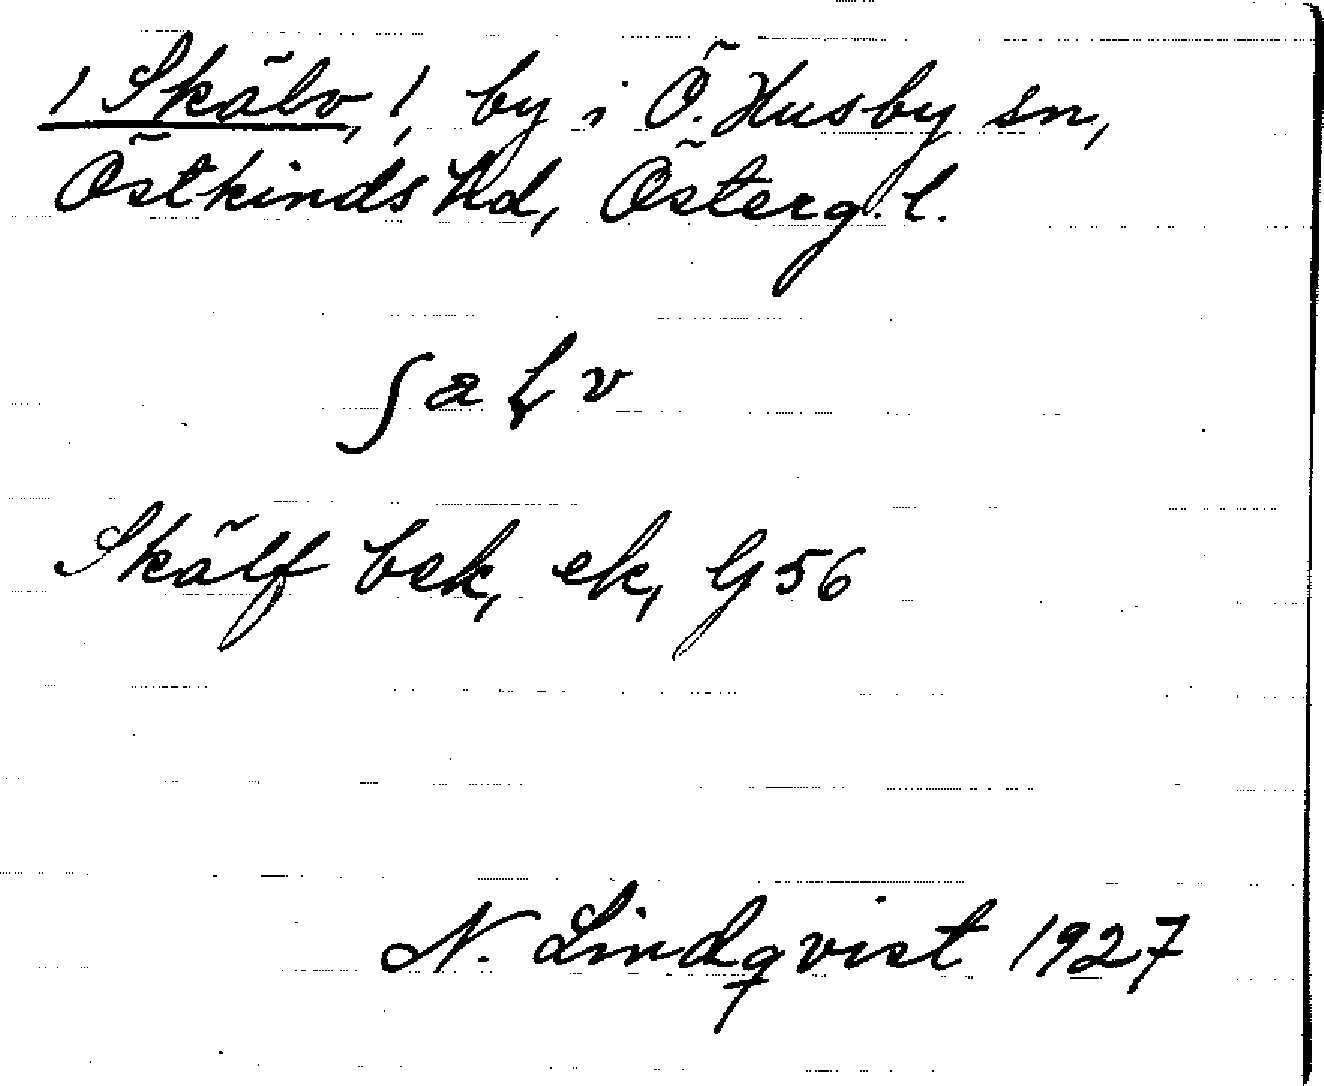 / Skälv, /, by i Ö. Husby sn,
Östkinds hd, Österg. l.
ʃ a ł v
Skälf bek, ek, G 56
N. Lindqvist 1927